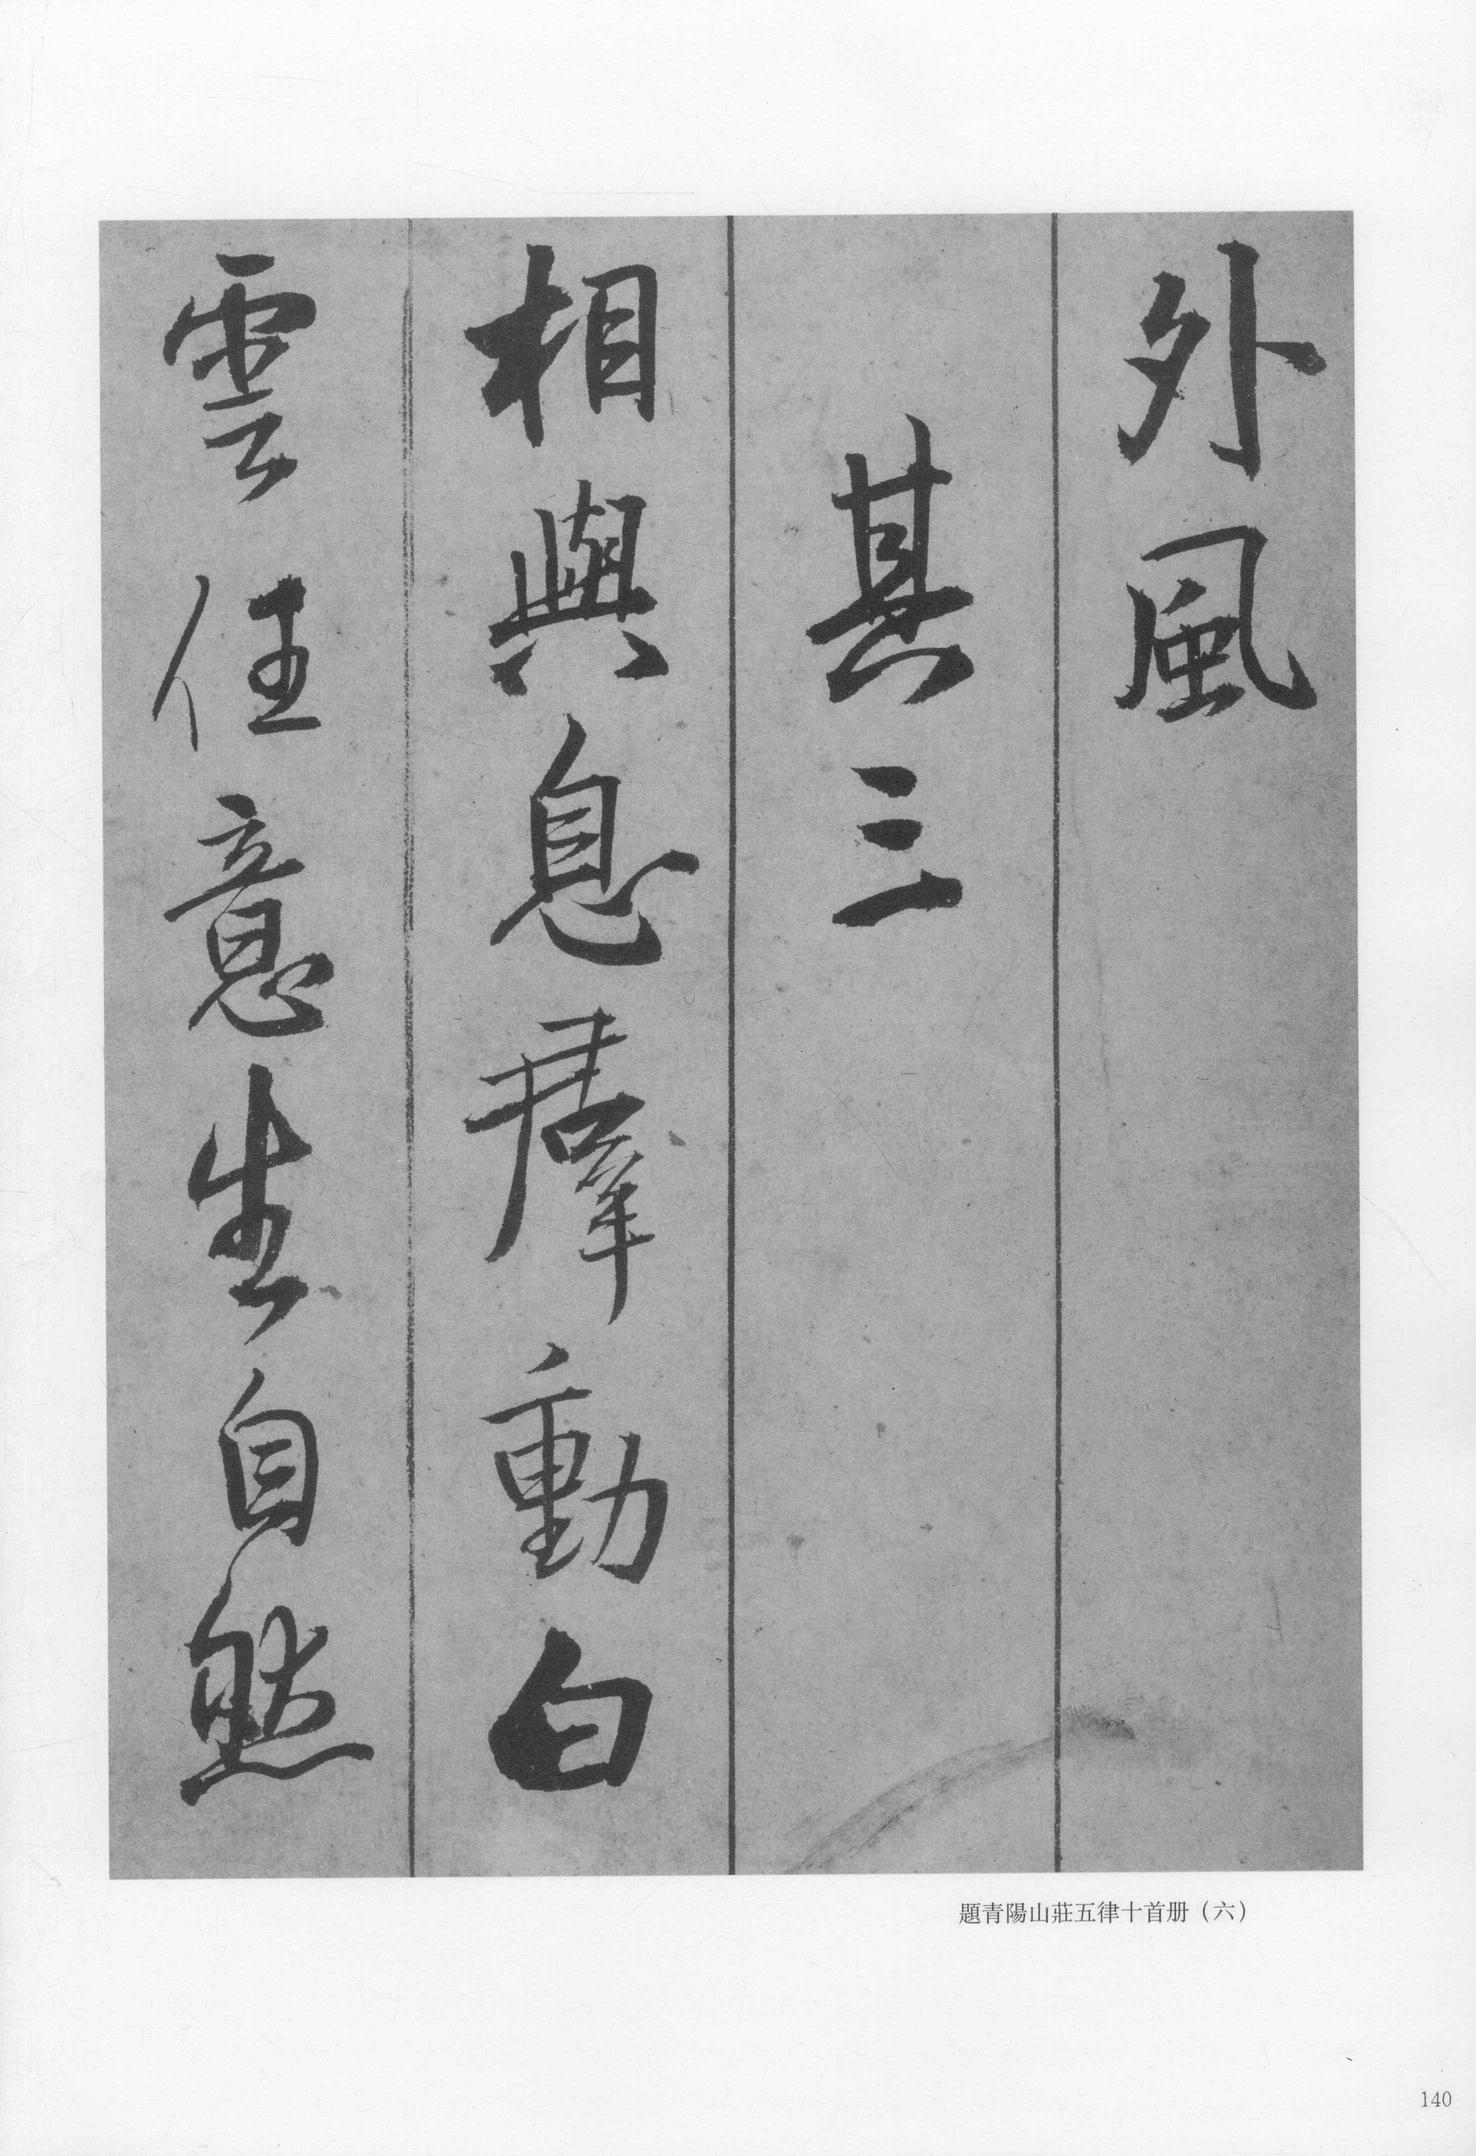 外風
其三
相與息羣動白
雲任意生自然
題青陽山莊五律十首册（六）
140